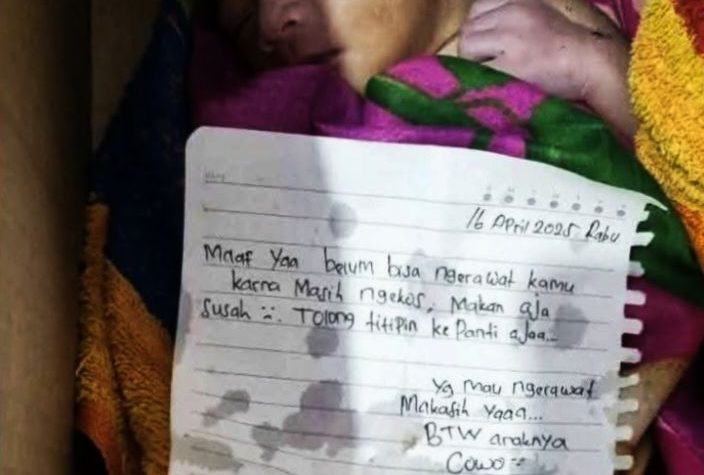 16 April 2025 Rabu
Maaf Yaa belum bisa ngerawat kamu
karna Masih ngekos, Makan aja
susah :. Tolong titipin ke Panti ajaa...
Yg mau ngerawat
Makasih Yaaa...
BTW anaknya
Cowo